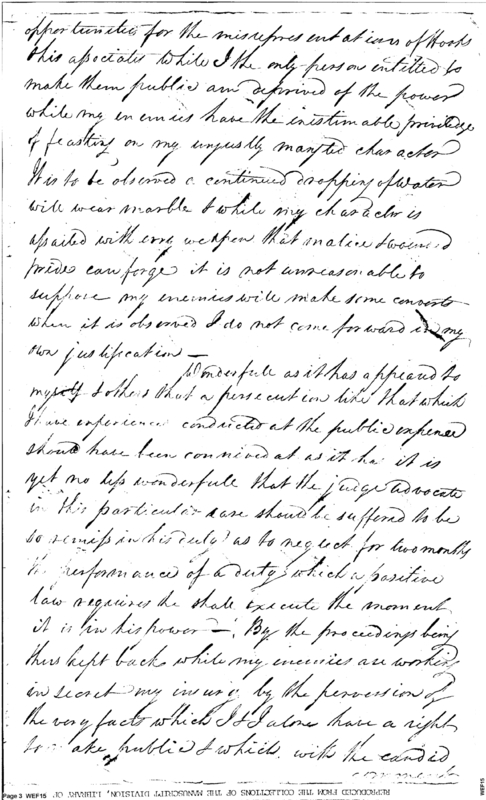 opportunities for the misrepresentations of Hooks
& his associates while I the only person intitled to
make them public am deprived of the power
while my enemies have the inestimable privilege
of feasting on my unjustly mangled character
It is to be observed a continued dropping of Water
will wear marble & while my character is
assailed with every weapon that malice & wounded
pride can forge it is not unreasonable to
suppose my enemies will make some converts
when it is observed I do not come forward in my
own justification —
Wonderfull as it has appeared to
myself & others that a persecution like that which
I have experienced conducted at the public expense
should have been connived at as it has it is
yet no less wonderfull that the judge advocate
in this particular case should be suffered to be
so remiss in his duty as to neglect for two months
the performance of a duty which a positive
law requires he shall execute the moment
it is in his power — By the proceedings being
thus kept back while my enemies are working
in secret my injury by the perversion of
the very facts which I & I alone have a right
to make public & which with the candid
REPRODUCED FROM THE COLLECTIONS OF THE MANUSCRIPT DIVISION, LIBRARY OF
Page 3 WEF15
WEF15